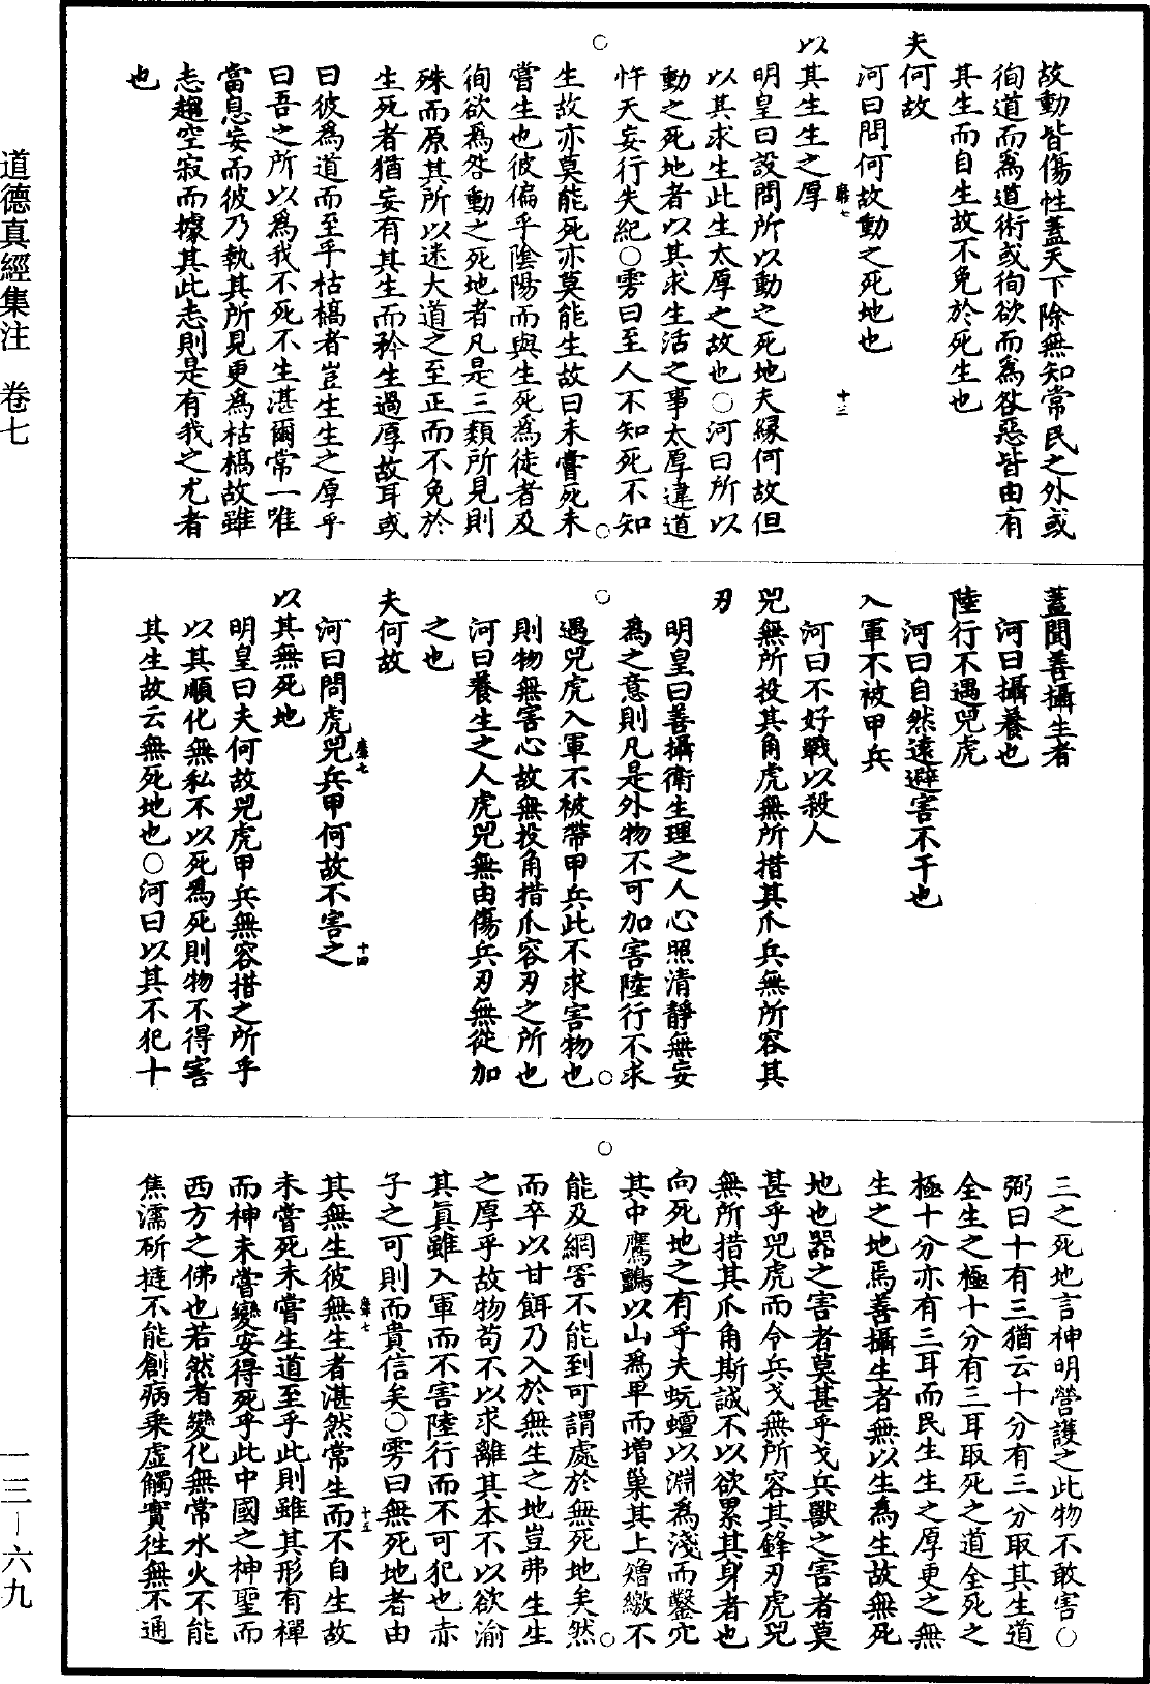 故動皆傷性蓋天下除無知常民之外或
徇道而為道術或徇欲而為咎惡皆由有
其生而自生故不免於死生也
夫何故
河曰問何故動之死地也
以其生生之厚
明皇曰設問所以動之死地夫緣何故但
以其求生此生太厚之故也○河曰所以
動之死地者以其求生活之事太厚違道
忤天妄行失紀○雱曰至人不知死不知
生故亦莫能死亦莫能生故曰未嘗死未
嘗生也彼偏乎陰陽而與生死為徒者及
徇欲為咎動之死地者凡是三類所見則
殊而原其所以迷大道之至正而不免於
生死者猶妄有其生而矜生過厚故耳或
曰彼為道而至乎枯槁者豈生生之厚乎
曰吾之所以為我不死不生湛爾常一唯
當息妄而彼乃執其所見更為枯槁故雖
志趨空寂而據其此志則是有我之尤者
也
蓋聞善攝生者
河曰攝養也
陸行不遇兕虎
河曰自然遠避害不干也
入軍不被甲兵
河曰不好戰以殺人
兕無所投其角虎無所措其爪兵無所容其
刃
明皇曰善攝衛生理之人心照清靜無妄
為之意則凡是外物不可加害陸行不求
遇兕虎入軍不被帶甲兵此不求害物也
則物無害心故無投角措爪容刃之所也
河曰養生之人虎兕無由傷兵刃無從加
之也
夫何故
河曰問虎兕兵甲何故不害之
以其無死地
明皇曰夫何故兕虎甲兵無容措之所乎
以其順化無私不以死為死則物不得害
其生故云無死地也○河曰以其不犯十
三之死地言神明營護之此物不敢害○
弼曰十有三猶云十分有三分取其生道
全生之極十分有三耳取死之道全死之
極十分亦有三耳而民生生之厚更之無
生之地焉善攝生者無以生為生故無死
地也器之害者莫甚乎戈兵獸之害者莫
甚乎兕虎而令兵戈無所容其鋒刃虎兕
無所措其爪角斯誠不以欲累其身者也
向死地之有乎夫蚖蟺以淵為淺而鑿穴
其中鷹鸇以山為卑而增巢其上矰繳不
能及網罟不能到可謂處於無死地矣然
而卒以甘餌乃入於無生之地豈弗生生
之厚乎故物苟不以求離其本不以欲渝
其真雖入軍而不害陸行而不可犯也赤
子之可則而貴信矣○雱曰無死地者由
其無生彼無生者湛然常生而不自生故
未嘗死未嘗生道至乎此則雖其形有禪
而神未嘗變安得死乎此中國之神聖而
西方之佛也若然者變化無常水火不能
焦濡斫撻不能創痏乘虛觸實往無不通
道德真經集注 卷七
一三－六九